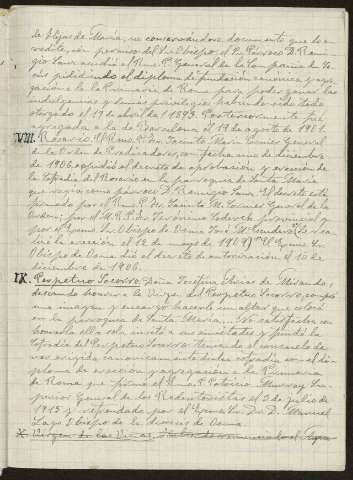 de Hijas de María, no conservándose documento que lo a-
credite, con permiso del Sr. Obispo el Sr. Párroco D. Remi-
gio Sanz acudió al Rmo. P. General de la Compañía de Je-
sús pidiendo el diploma de fundación canónica y agre-
gación a la Primaria de Roma para poder ganar las
indulgencias y demás privilegios, habiendo sido todo
otorgado el 19 de abril de 1893. Posteriormente fué
agregada a la de Barcelona el 19 de agosto de 1901.
VIII. Rosario. El Rmo. P. Fr. Jacinto María Cormier General
de la Orden de Predicadores, con fecha uno de diciembre
de 1906 expidió el decreto de aprobación y erección de
la Cofradía del Rosario en la parroquia de Santa María
que regía como párroco D. Remigio Sanz. El decreto está
firmado por el Rmo. P. Fr. Jacinto M. Cormier General de la
Orden; por el M. R. P. Fr. Jerónimo Coderch provincial y
por el Excmo. Sr. Obispo de Osma José M. Escudero. Se rea-
lizó la erección el 12 de mayo de 1907. El Excmo. Sr.
Obispo de Osma dió el decreto de autorización el 10 de
diciembre de 1906.
IX. Perpetuo Socorro. Doña Josefina de Miranda,
deseando honrar a la Virgen del Perpetuo Socorro, compró
una imagen y encargó hacerle un altar que colocó
en la parroquia de Santa María. No satisfecha con
honrarla ella sola invitó a sus amistades y fundó la
Cofradía del Perpetuo Socorro teniendo el consuelo de
ver erigida canónicamente dicha cofradía con el di-
ploma de erección y agregación a la Primaria
de Roma que firma el Rmo. P. Patricio Murray Su-
perior General de los Redentoristas el 3 de julio de
1915 y refrendado por el Excmo. Sr. Dr. D. Manuel
Lago Obispo de la diócesis de Osma.
X. Virgen de las Viñas.